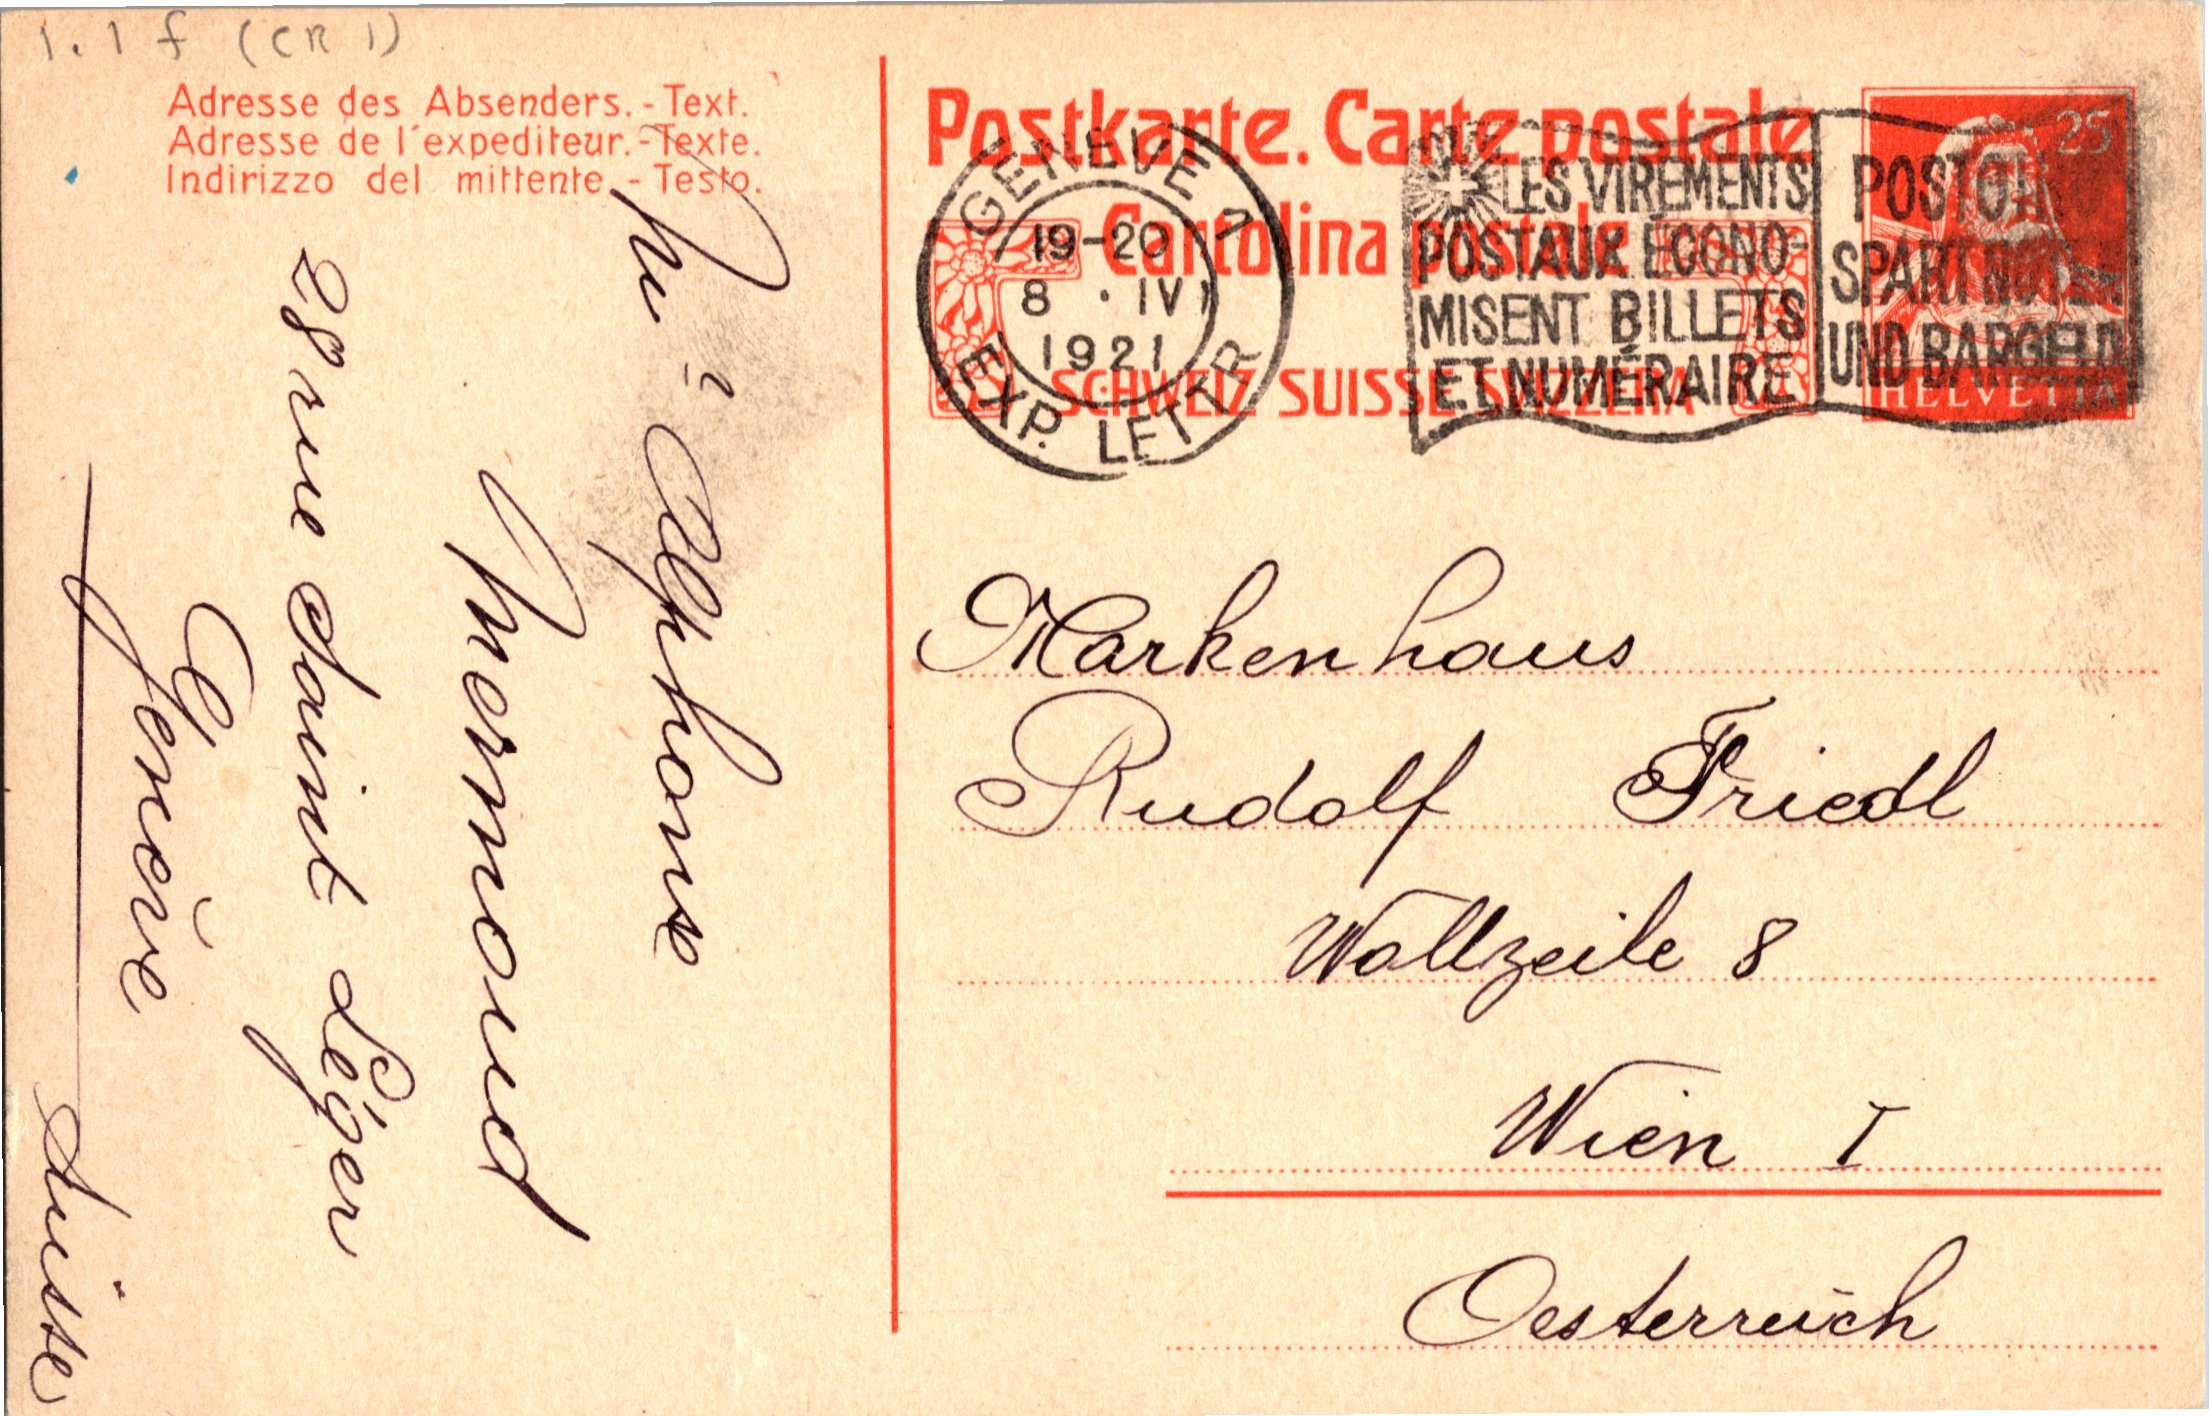 1.1 f (CR 1)
Adresse des Absenders. - Text.
Adresse de l'expediteur. - Texte.
Indirizzo del mittente - Testo.
Alphonse
Mermoud
28 rue Saint Léger
Genève
Suisse
Postkarte. Carte postale
Cartolina postale
SCHWEIZ SUISSE SVIZZERA
GENÈVE 1
19-20
8 · IV
1921
EXP. LETTR
LES VIREMENTS
POSTAUX ÉCONO-
MISENT BILLETS
ET NUMÉRAIRE
SPART NOTEN
UND BARGELD
25
HELVETIA
Markenhaus
Rudolf Friedl
Wollzeile 8
Wien I
Oesterreich